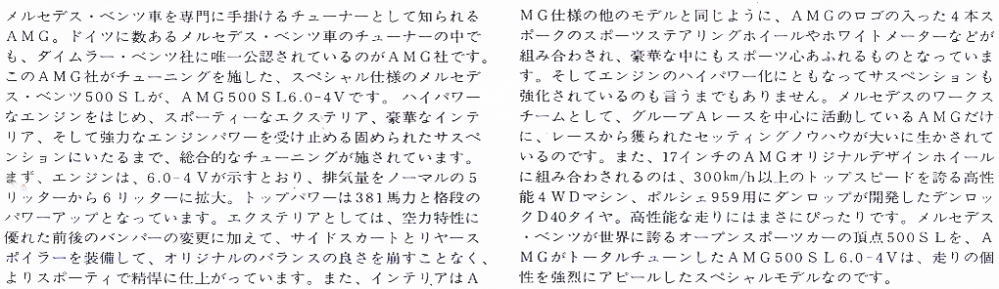 メルセデス・ベンツ車を専門に手掛けるチューナーとして知られる
AMG。ドイツに数あるメルセデス・ベンツ車のチューナーの中で
も、ダイムラー・ベンツ社に唯一公認されているのがAMG社です。
このAMG社がチューニングを施した、スペシャル仕様のメルセデ
ス・ベンツ500SLが、AMG500SL6.0-4Vです。ハイパワー
なエンジンをはじめ、スポーティーなエクステリア、豪華なインテ
リア、そして強力なエンジンパワーを受け止める固められたサスペ
ンションにいたるまで、総合的なチューニングが施されています。
まず、エンジンは、6.0-4Vが示すとおり、排気量をノーマルの5
リッターから6リッターに拡大。トップパワーは381馬力と格段の
パワーアップとなっています。エクステリアとしては、空力特性に
優れた前後のバンパーの変更に加えて、サイドスカートとリヤース
ポイラーを装備して、オリジナルのバランスの良さを崩すことなく、
よりスポーティで精悍に仕上がっています。また、インテリアはA
MG仕様の他のモデルと同じように、AMGのロゴの入った4本ス
ポークのスポーツステアリングホイールやホワイトメーターなどが
組み合わされ、豪華な中にもスポーツ心あふれるものとなっていま
す。そしてエンジンのハイパワー化にともなってサスペンションも
強化されているのも言うまでもありません。メルセデスのワークス
チームとして、グループAレースを中心に活動しているAMGだけ
に、レースから獲られたセッティングノウハウが大いに生かされて
いるのです。また、17インチのAMGオリジナルデザインホイール
に組み合わされるのは、300km/h以上のトップスピードを誇る高性
能4WDマシン、ポルシェ959用にダンロップが開発したデンロッ
クD40タイヤ。高性能な走りにはまさにぴったりです。メルセデス
・ベンツが世界に誇るオープンスポーツカーの頂点500SLを、A
MGがトータルチューンしたAMG500SL6.0-4Vは、走りの個
性を強烈にアピールしたスペシャルモデルなのです。